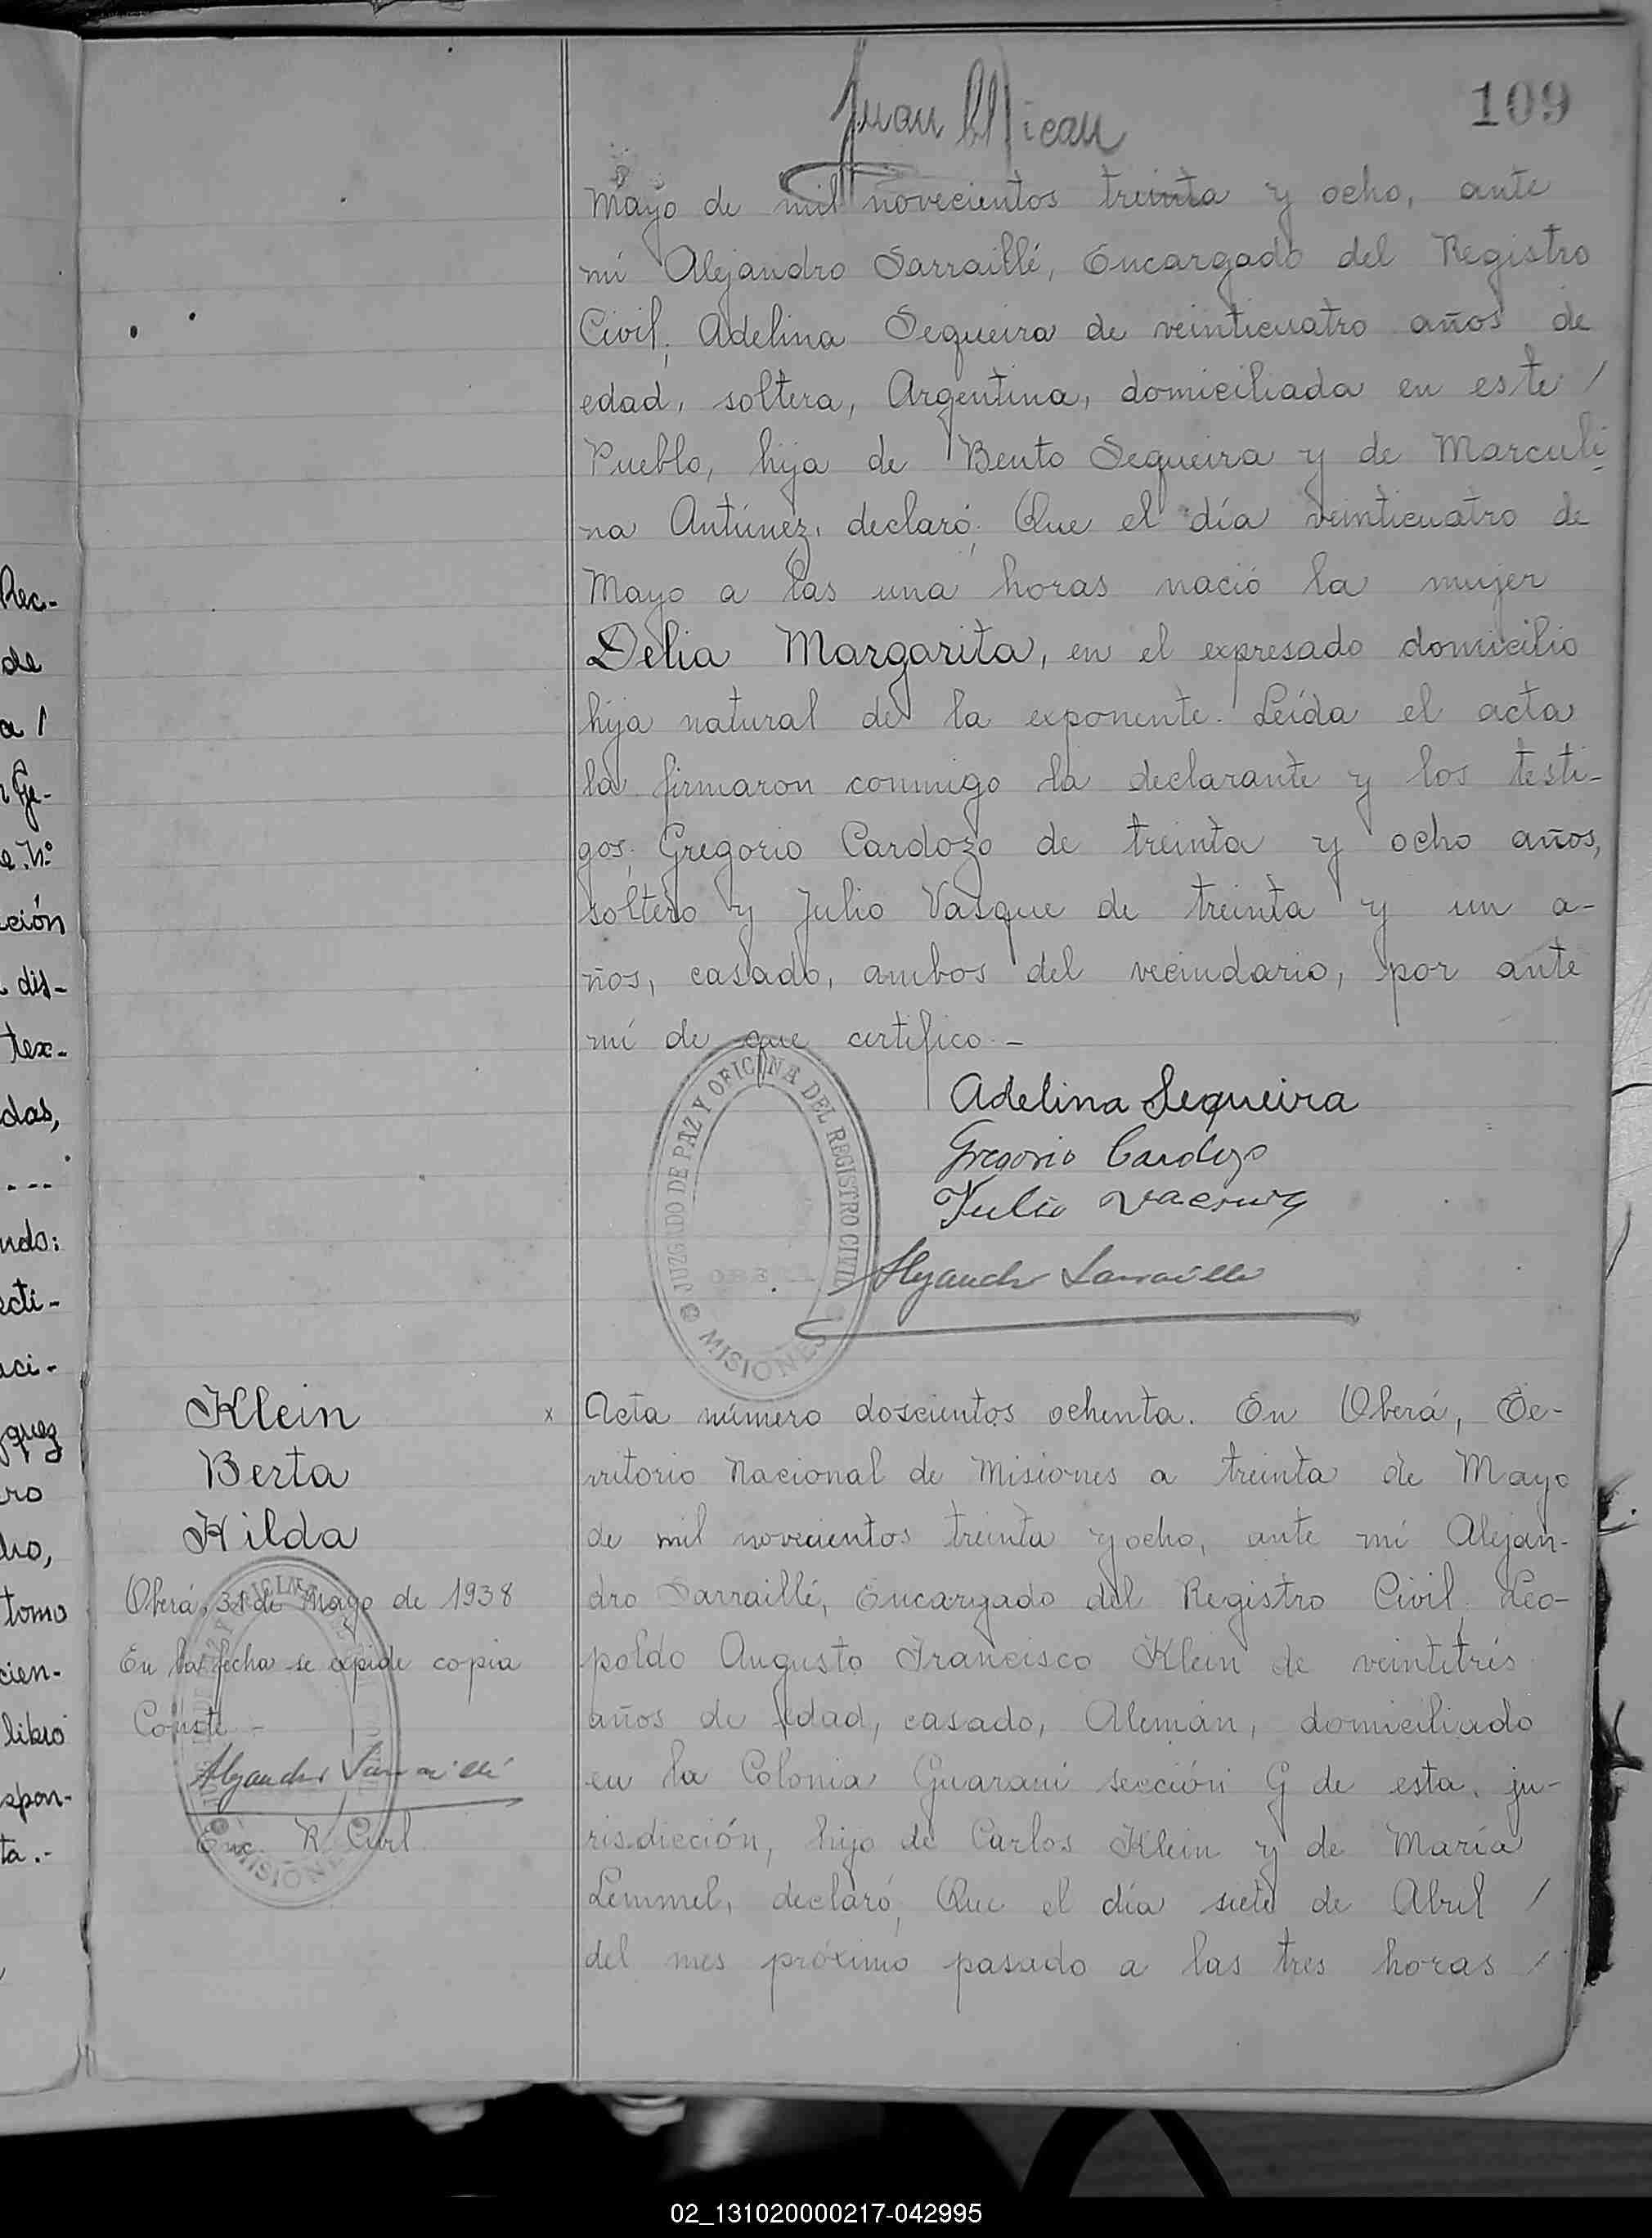 109
Juan
Mayo de mil novecientos treinta y ocho, ante
mí Alejandro Sarraillé, Encargado del Registro
Civil, Adelina Sequeira de veinticuatro años de
edad, soltera, Argentina, domiciliada en este /
Pueblo, hija de Bento Sequeira y de Marculi-
na Antúnez, declaró: Que el día veinticuatro de
Mayo a las una horas nació la mujer
Delia Margarita, en el expresado domicilio
hija natural de la exponente. Leída el acta
la firmaron conmigo la declarante y los testi-
gos: Gregorio Cardozo de treinta y ocho años,
soltero y Julio Vasque de treinta y un a-
ños, casado, ambos del vecindario, por ante
mí de que certifico.-
JUZGADO DE PAZ Y OFICINA DEL REGISTRO CIVIL
OBERÁ
MISIONES
Adelina Sequeira
Gregorio Cardozo
Julio
Alejandro Sarraillé
Klein
Berta
Hilda
Oberá, 31 de Mayo de 1938
En la fecha se expide copia
Conste -
Alejandro Sarraillé
Enc. R. Civil
MISIONES
x Acta número doscientos ochenta. En Oberá, Te-
rritorio Nacional de Misiones a treinta de Mayo
de mil novecientos treinta y ocho, ante mí Alejan-
dro Sarraillé, Encargado del Registro Civil, Leo-
poldo Augusto Francisco Klein de veintitrés
años de edad, casado, Alemán, domiciliado
en la Colonia Guaraní sección G de esta ju-
risdicción, hijo de Carlos Klein y de María
Lemmel, declaró: Que el día siete de Abril /
del mes próximo pasado a las tres horas /
Rec-
de
a /
Ge-
e N°
ción
dis-
tex-
das,
---
ndo:
cti-
aci-
quez
ro
ho,
tomo
cien-
libro
spon-
ta.-
02_131020000217-042995